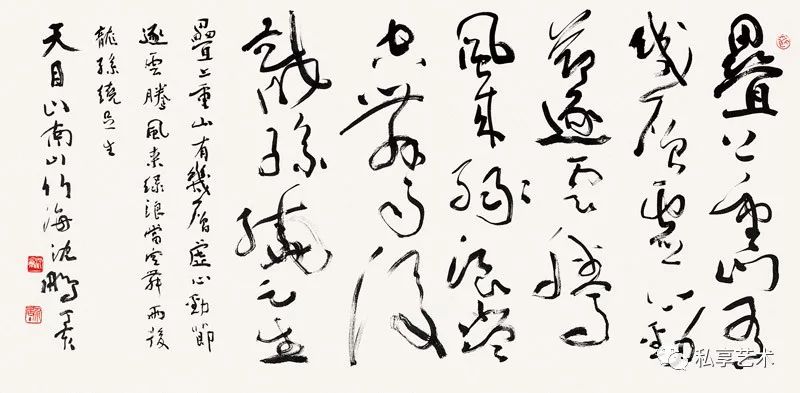 疊々重山有
幾層虛心勁
節逐雲騰
風來綠浪當
空舞雨後
龍孫繞足生
疊々重山有幾層虛心勁節
逐雲騰風來綠浪當空舞雨後
龍孫繞足生
天目山南山竹海沈鵬
私享艺术